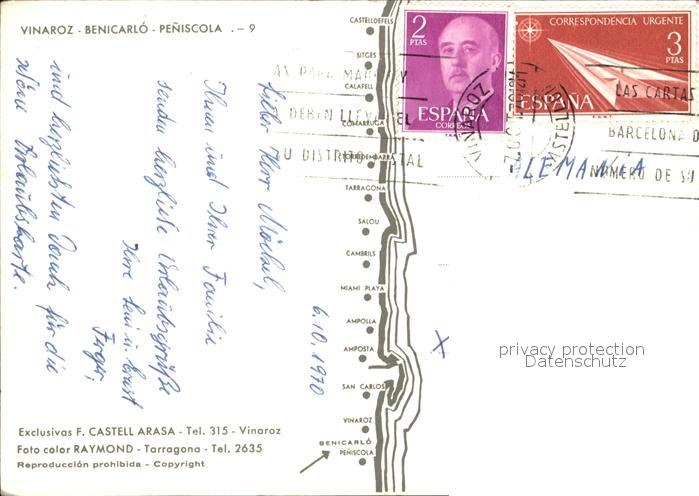 VINAROZ - BENICARLÓ - PEÑISCOLA .- 9
CASTELLDEFELS
SITGES
CALAFELL
COMARRUGA
TORREDEMBARRA
TARRAGONA
SALOU
CAMBRILS
MIAMI PLAYA
AMPOLLA
AMPOSTA
SAN CARLOS
VINAROZ
BENICARLÓ
PEÑISCOLA
2
PTAS
ESPAÑA
CORREOS
CORRESPONDENCIA URGENTE
3
PTAS
ESPAÑA
F.N.M.T.
VINAROZ
LAS CARTAS
BARCELONA D
NUMERO DE SU
AS PARA MA
DEBEN LLEVA EL
U DISTRITO
TAL
LEMANIA
6.10.1970
Lieber Herr
Ihnen und Ihrer Familie
senden herzliche Urlaubsgrüße
Ihre
und herzlichsten Dank für die
schöne Urlaubskarte.
X
privacy protection
Datenschutz
Exclusivas F. CASTELL ARASA - Tel. 315 - Vinaroz
Foto color RAYMOND - Tarragona - Tel. 2635
Reproducción prohibida - Copyright